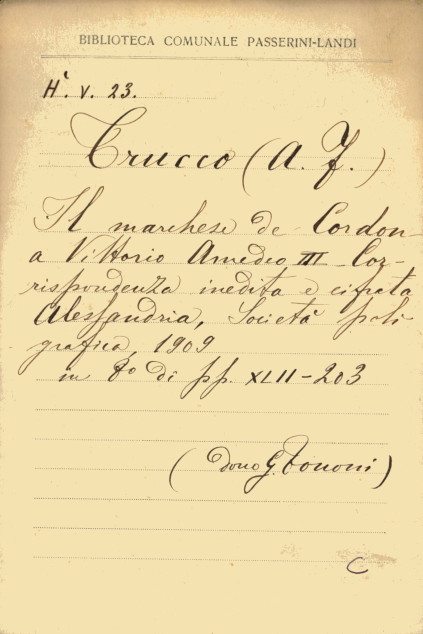 BIBLIOTECA COMUNALE PASSERINI-LANDI
Hª. V. 23.
Trucco (A. F.)
Il marchese de Cordon-
a Vittorio Amedeo III - Cor-
rispondenza inedita e cifrata
Alessandria, Società poli
grafica, 1909
in 8º di pp. XLII-203
(dono G. Tononi)
C